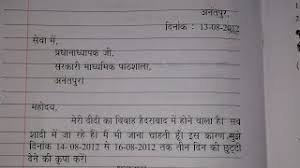 अनंतपुर,
दिनांक : 13-08-2012
सेवा में,
प्रधानाध्यापक जी,
सरकारी माध्यमिक पाठशाला,
अनंतपुर।
महोदय,
मेरी दीदी का विवाह हैदराबाद में होने वाला है। सब
शादी में जा रहे हैं। मैं भी जाना चाहती हूँ। इस कारण मुझे
दिनांक 14-08-2012 से 16-08-2012 तक तीन दिन की छुट्टी
देने की कृपा करें।